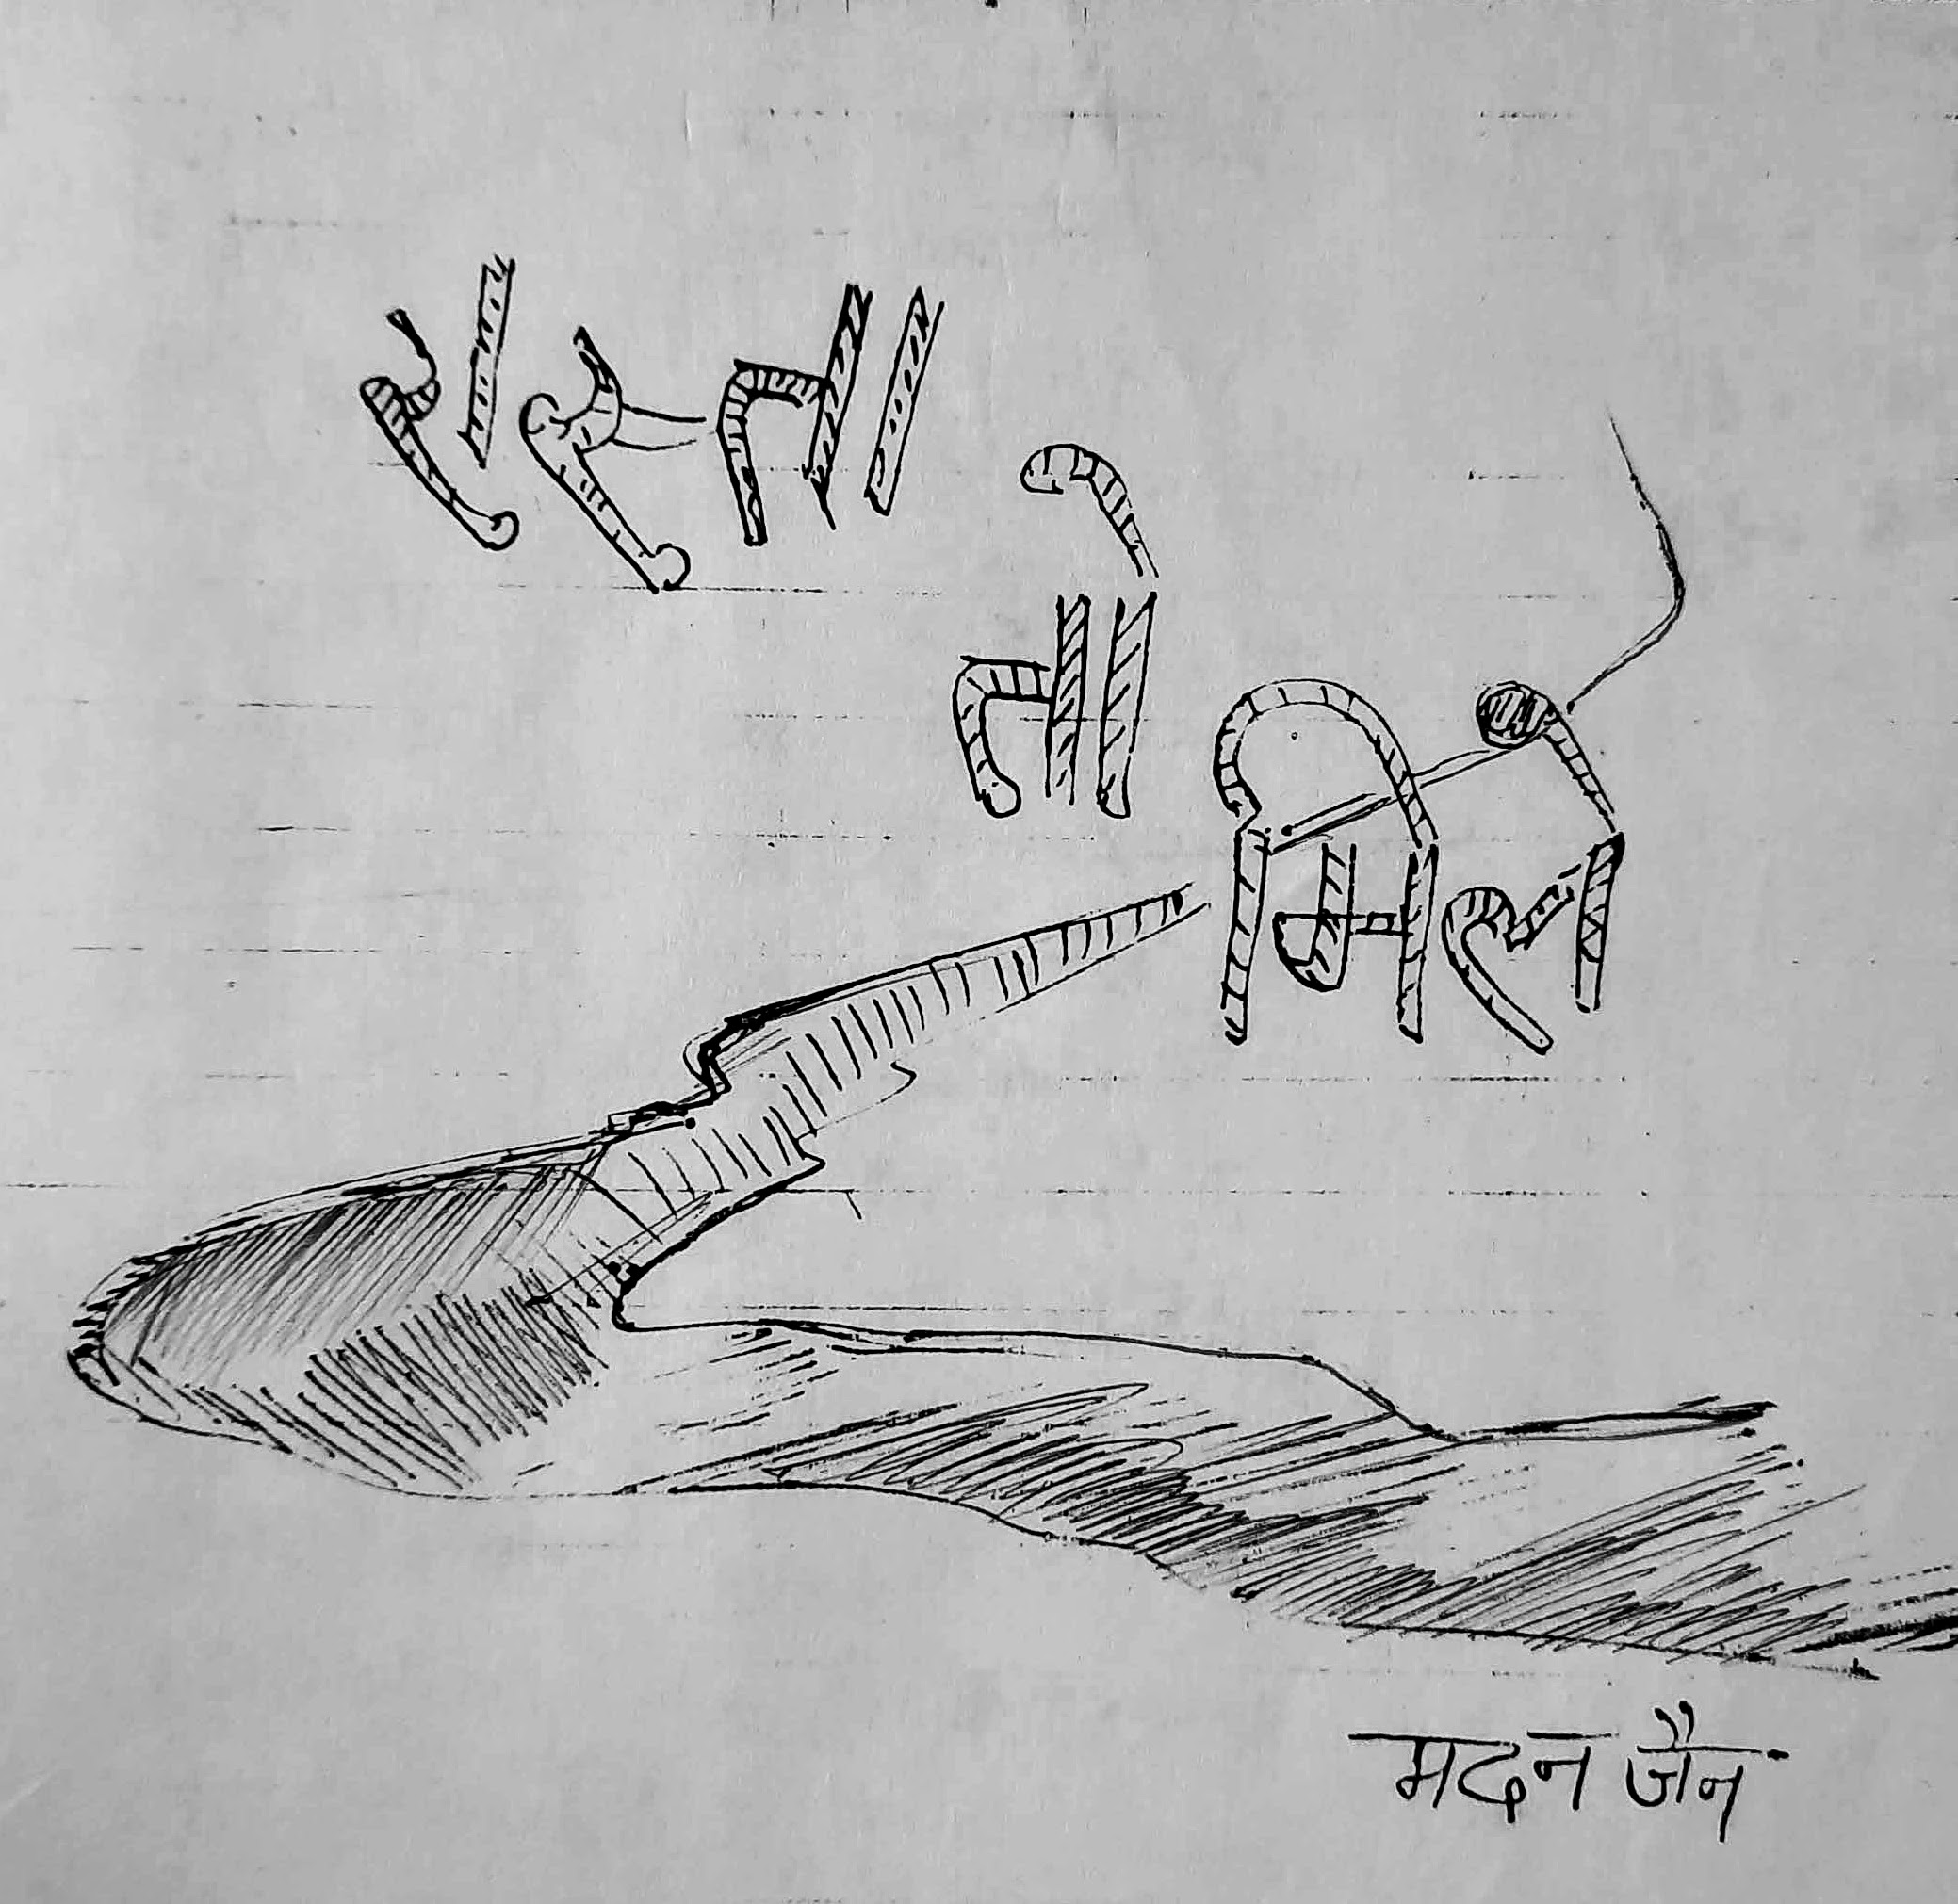 रास्ता तो मिले
मदन जैन